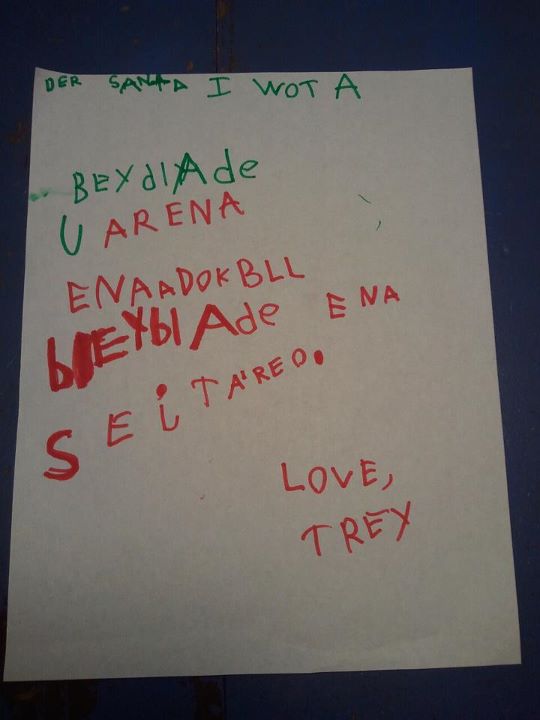 DER SANTA I WOT A
BEYdlAde
U ARENA
ENAADOKBLL
bEYblAde ENA
SEiTAREO.
LOVE,
TREY